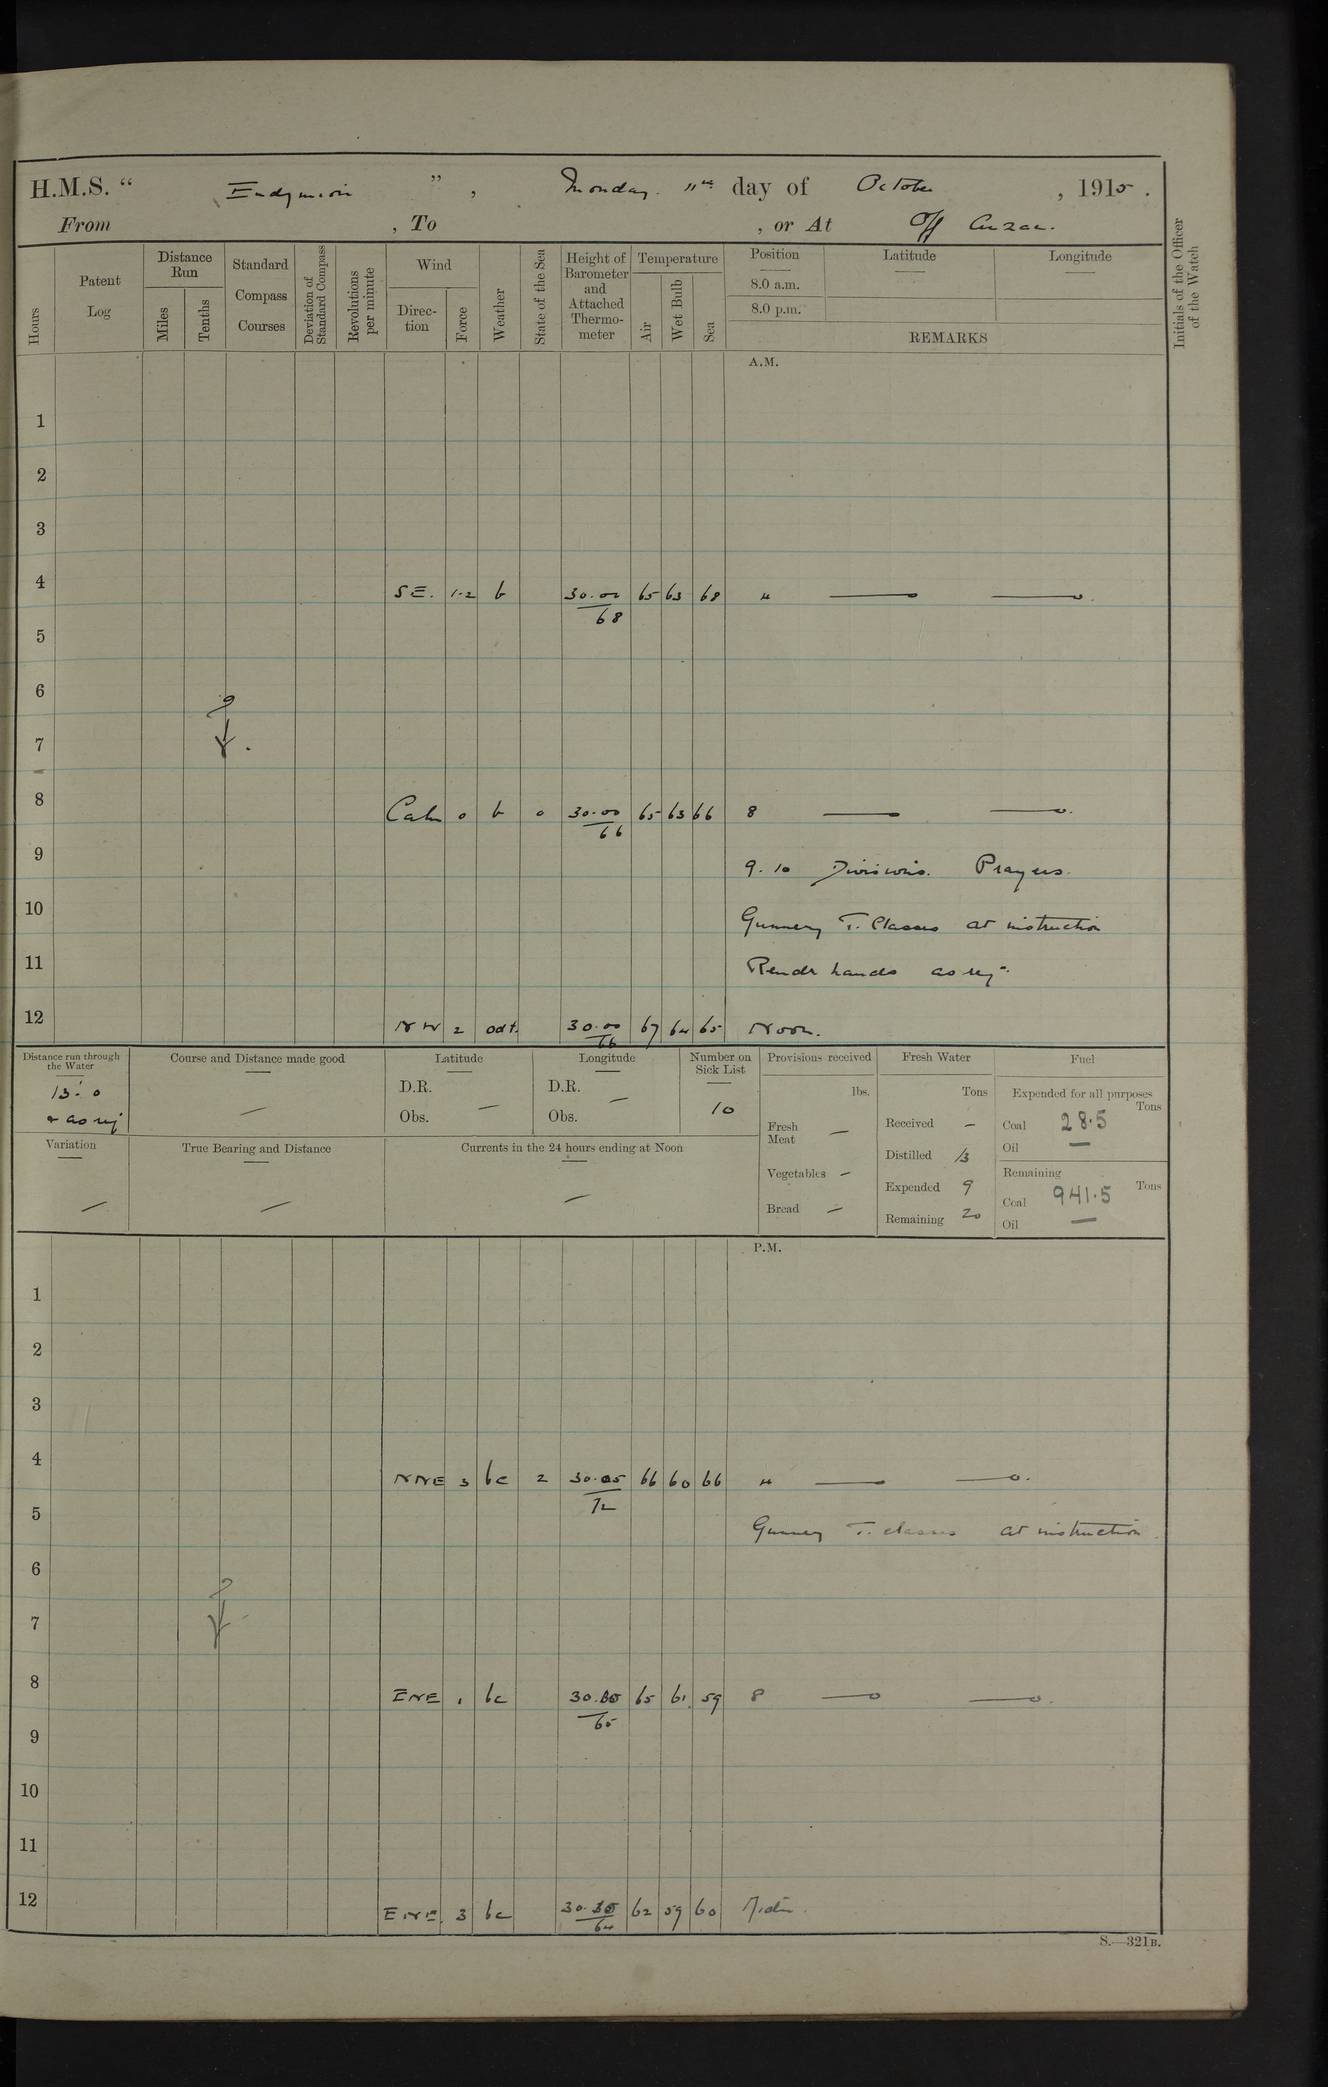 H.M.S. " Endymion ", Monday 11th day of October, 1915.
From , To , or At Off Anzac.
Hours
Patent Log
Distance Run
Miles
Tenths
Standard Compass Courses
Deviation of Standard Compass
Revolutions per minute
Wind
Direction
Force
Weather
State of the Sea
Height of Barometer and Attached Thermometer
Temperature
Air
Wet Bulb
Sea
Position
8.0 a.m.
8.0 p.m.
Latitude
Longitude
REMARKS
Initials of the Officer of the Watch
A.M.
1
2
3
4 SE. 1-2 b 30.00/68 65 63 68 4
5
6
7
8 Calm 0 b 0 30.00/66 65 63 66 8
9 9.10 Divisions. Prayers.
10 Gunnery T. Classes at instruction
11 Remdr hands as req.
12 NW 2 odt. 30.00/66 67 64 65 Noon.
Distance run through the Water
13.0
& as req
Course and Distance made good —
Latitude
D.R.
Obs. —
Longitude
D.R.
Obs. —
Number on Sick List
10
Variation —
True Bearing and Distance —
Currents in the 24 hours ending at Noon —
Provisions received
lbs.
Fresh Meat —
Vegetables —
Bread —
Fresh Water
Tons
Received —
Distilled 13
Expended 9
Remaining 20
Fuel
Expended for all purposes
Tons
Coal 28.5
Oil —
Remaining
Tons
Coal 941.5
Oil —
P.M.
1
2
3
4 NNE 3 bc 2 30.05/72 66 60 66 4
5 Gunnery T. classes at instruction
6
7
8 ENE 1 bc 65 65 61 59 8
9
10
11
12 ENE. 3 bc 64 62 59 60 Midn.
S.—321B.